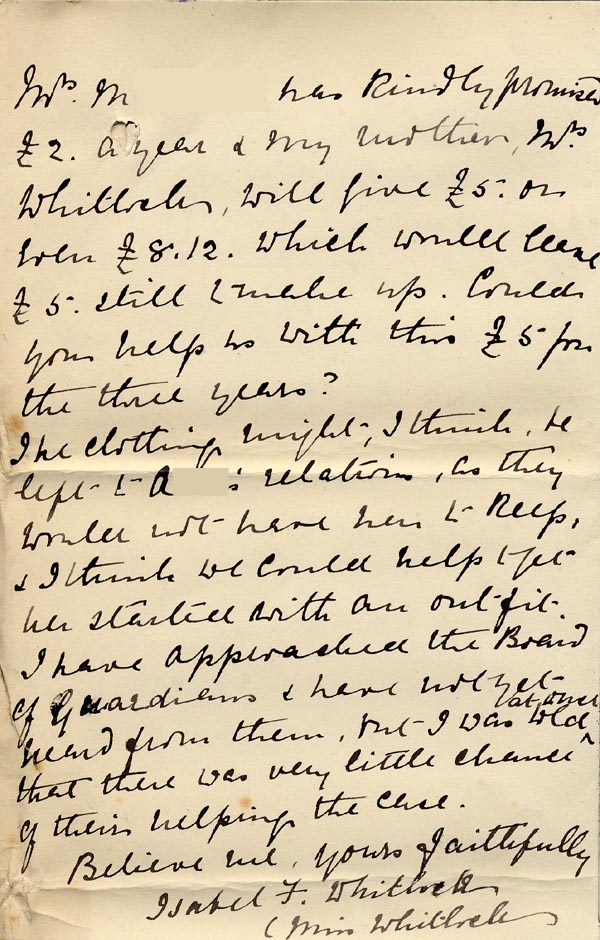 Mrs. M has kindly promised
£2. a year & my mother, Mrs.
Whitlock, will give £5. or
even £8.12. which would leave
£5. still to make up. Could
you help us with this £5 for
the three years?
The clothing might, I think, be
left to A 's relations, as they
would not have her to keep,
& I think we could help to get
her started with an outfit.
I have approached the Board
of Guardians & have not yet
heard from them, but I was told at once
that there was very little chance
of their helping the case.
Believe me, yours faithfully
Isabel F. Whitlock
(Miss Whitlock